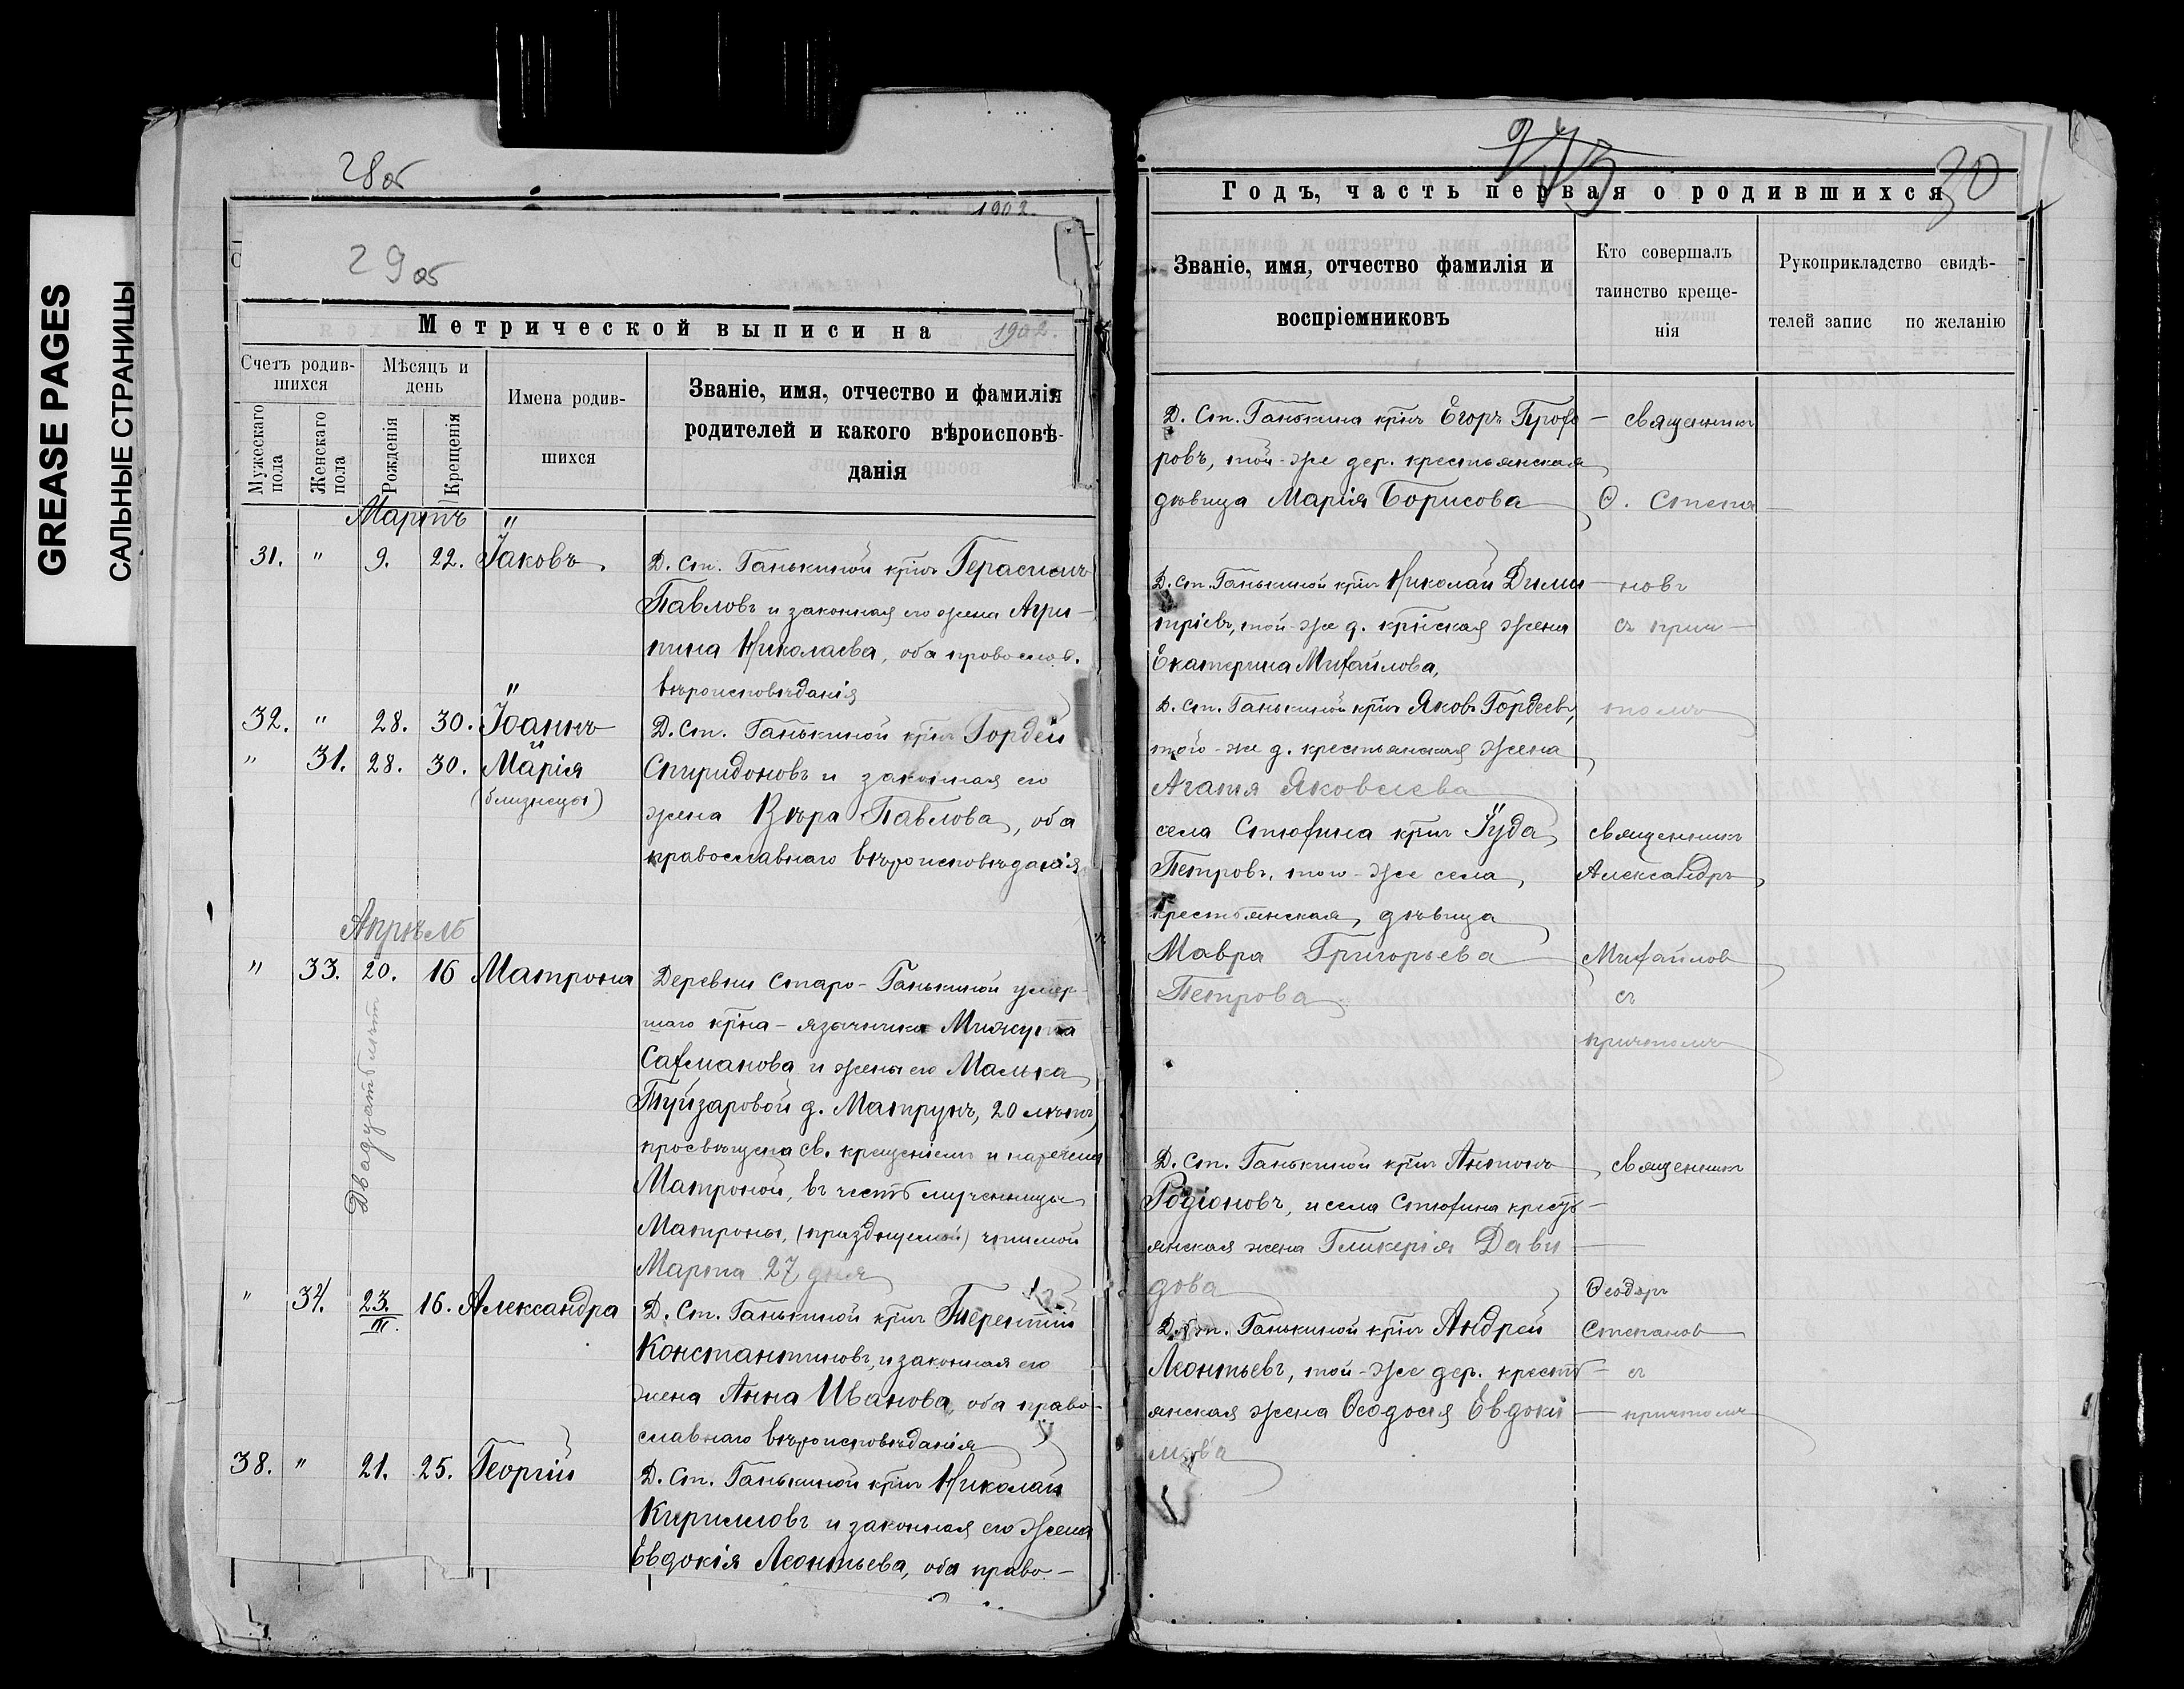 GREASE PAGES
САЛЬНЫЕ СТРАНИЦЫ
28об
1902.
29об
Метрической выписи на 1902.
Счетъ родив-
шихся
Мужескаго
пола
Женскаго
пола
Мѣсяцъ и
день
Рожденія
Крещенія
Имена родив-
шихся
Званіе, имя, отчество и фамилія
родителей и какого вѣроисповѣ-
данія
Мартъ "
31. " 9. 22. Іаковъ Д. Ст. Ганькиной кр̃нъ Герасимъ
Павловъ и законная его жена Агри-
пина Николаева, оба
вѣроисповѣданія
"
32. " 28. 30. Іоаннъ Д. Ст. Ганькиной кр̃нъ Гордей
и
" 31. 28. 30. Марія Спиридоновъ и законная его
(близнецы)
жена Вѣра Павлова, оба
православнаго вѣроисповѣданія
Апрѣль
" 33. 20. 16 Матрона Деревни Старо-Ганькиной умер-
Двадцать лѣтъ
шаго кр̃на-язычника
Сахманова и жены его
Туйзаровой д. Матрунъ, 20 лѣтъ,
просвѣщена св. крещеніемъ и наречена
Матроной, въ честь мученницы
Матроны, (празднуемой) чтимой
Марта 27 дня
" 34. 23. 16. Александра Д. Ст. Ганькиной кр̃нъ Терентій
III.
Константиновъ, и законная его
жена Анна Иванова, оба право-
славнаго вѣроисповѣданія
38. " 21. 25. Георгій Д. Ст. Ганькиной кр̃нъ Николай
Кирилловъ и законная его жена
Евдокія Леонтьева, оба право-
30
Годъ, часть первая о родившихся
Званіе, имя, отчество фамилія и
воспріемниковъ
Кто совершалъ
таинство креще-
нія
Рукоприкладство свидѣ-
телей запис по желанію
Д. Ст. Ганькина кр̃нъ Егоръ Прохо- священникъ
ровъ, той-же дер. крестьянская
дѣвица Марія Борисова Ѳ. Степа-
Д. Ст. Ганькиной кр̃нъ Николай Дими- новъ
тріевъ, той-же д. жена съ прич-
Екатерина Михайлова,
Д. Ст. Ганькиной кр̃нъ Яковъ Гордеевъ, томъ
той-же д. крестьянская жена
Агатія Яковлева
села Стюхина кр̃нъ Іуда священникъ
Петровъ, того-же села, Александръ
крестьянская, дѣвица
Мавра Григорьева Михайлов
Петрова съ
причтомъ
Д. Ст. Ганькиной кр̃нъ Антонъ священникъ
Родіоновъ, и села Стюхина кресть-
янская жена Гликерія Дави-
дова Ѳеодоръ
Д. Ст. Ганькиной кр̃нъ Андрей Степанов
Леонтьевъ, той-же дер. кресть- съ
янская жена Ѳеодосія Евдоки- причтомъ
мова